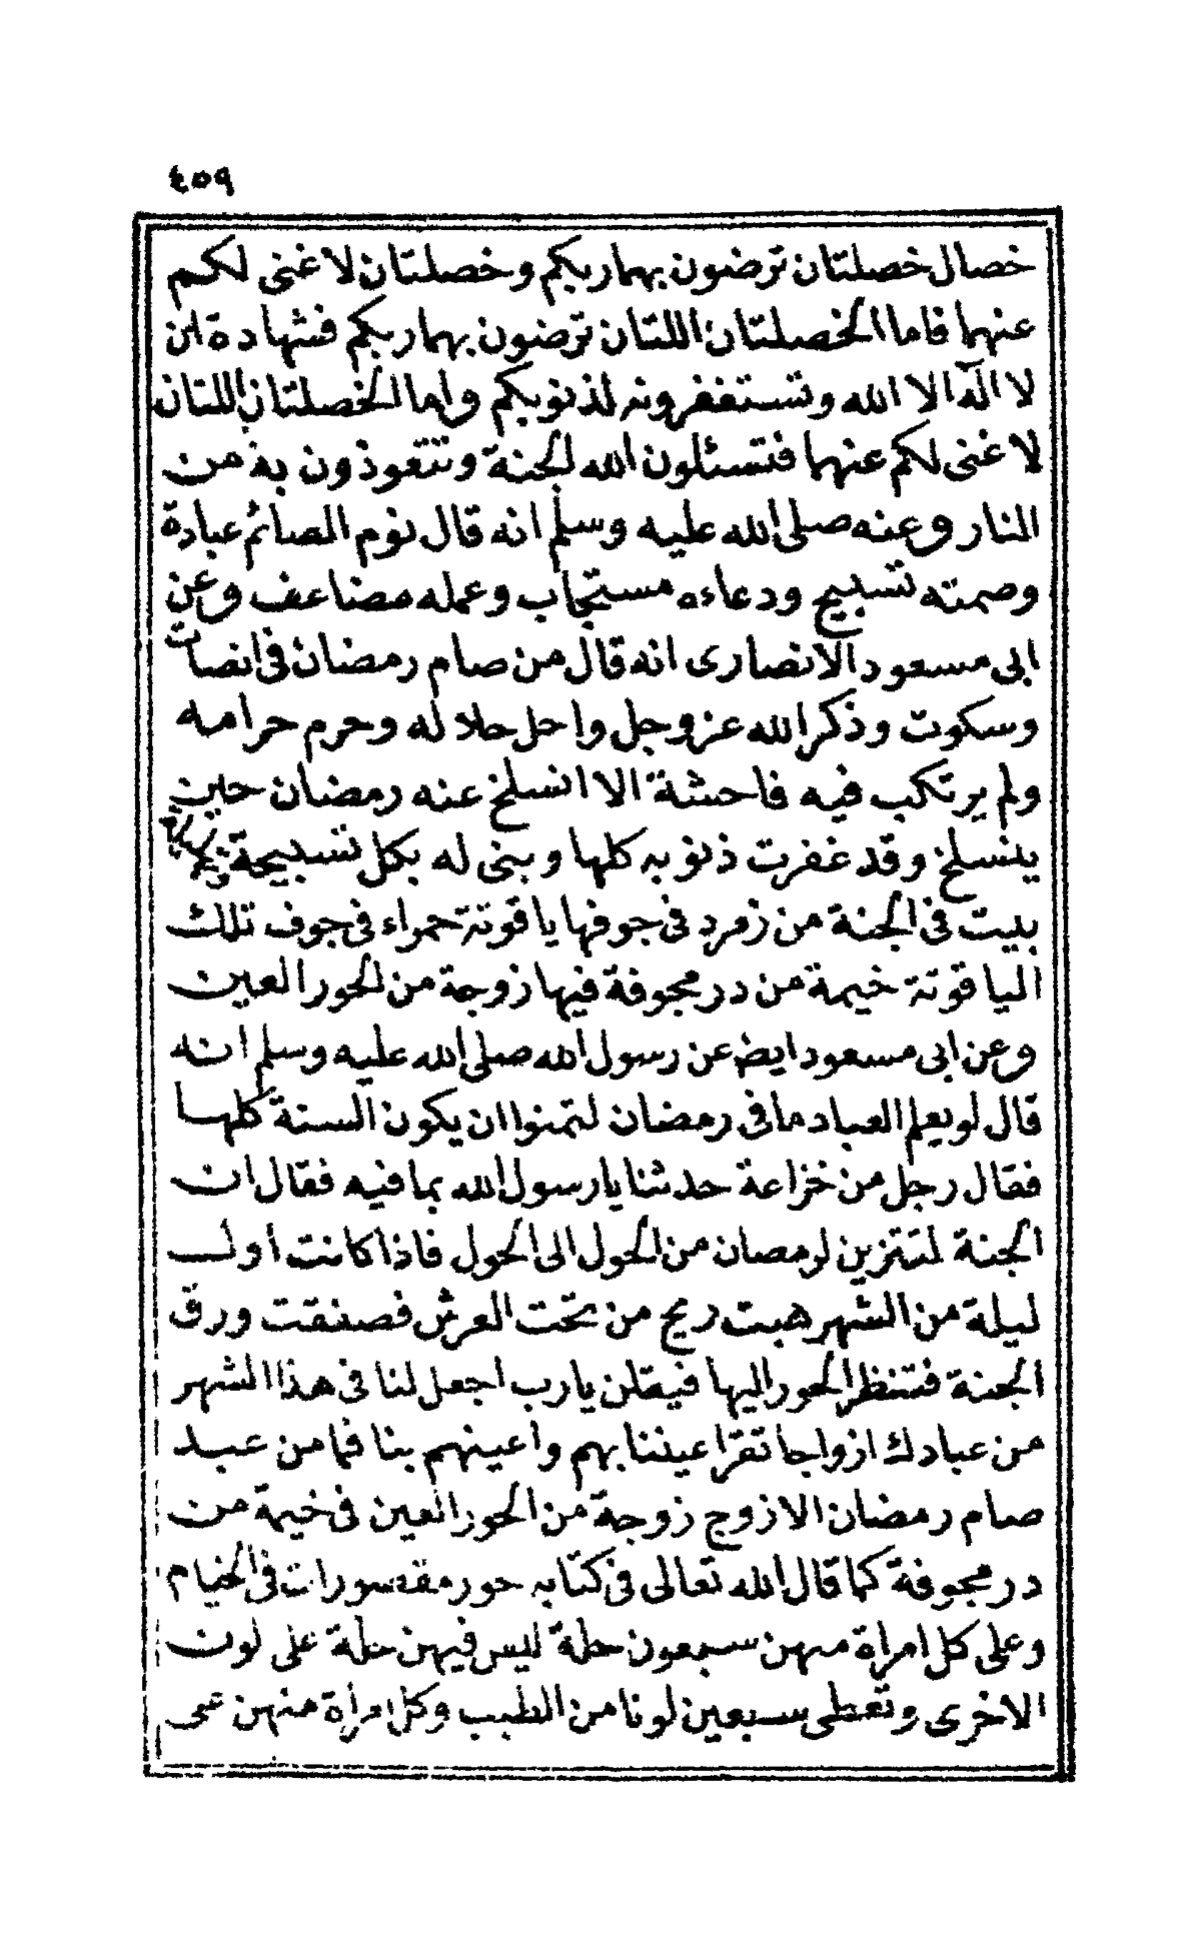 ٤٥٩
خصال خصلتان ترضون بهما ربكم وخصلتان لا غنى لكم
عنهما فاما الخصلتان اللتان ترضون بهما ربكم فشهادة ان
لا اله الا الله وتستغفرونه لذنوبكم واما الخصلتان اللتان
لا غنى لكم عنهما فتسئلون الله الجنة وتتعوذون به من
النار وعنه صلى الله عليه وسلم انه قال نوم الصائم عبادة
وصمته تسبيح ودعاءه مستجاب وعمله مضاعف وعن
ابى مسعود الانصارى انه قال من صام رمضان فى انصات
وسكوت وذكر الله عز وجل واحل حلاله وحرم حرامه
ولم يرتكب فيه فاحشة الا انسلخ عنه رمضان حين
ينسلخ وقد غفرت ذنوبه كلها وبنى له بكل تسبيحة
بيت فى الجنة من زمرد فى جوفها ياقوتة حمراء فى جوف تلك
الياقوتة خيمة من در مجوفة فيها زوجة من الحور العين
وعن ابى مسعود ايضا عن رسول الله صلى الله عليه وسلم انه
قال لو يعلم العباد ما فى رمضان لتمنوا ان يكون السنة كلها
فقال رجل من خزاعة حدثنا يا رسول الله بما فيه فقال ان
الجنة لتتزين لرمضان من الحول الى الحول فاذا كانت أول
ليلة من الشهر هبت ريح من تحت العرش فصفقت ورق
الجنة فتنظر الحور اليها فيقلن يارب اجعل لنا فى هذا الشهر
من عبادك ازواجا تقر اعيننا بهم واعينهم بنا فما من عبد
صام رمضان الا زوج زوجة من الحور العين فى خيمة من
در مجوفة كما قال الله تعالى فى كتابه حور مقصورات فى الخيام
وعلى كل امراة منهن سبعون حلة ليس فيهن حلة على لون
الاخرى وتعطى سبعين لونا من الطيب وكل امراة منهن على